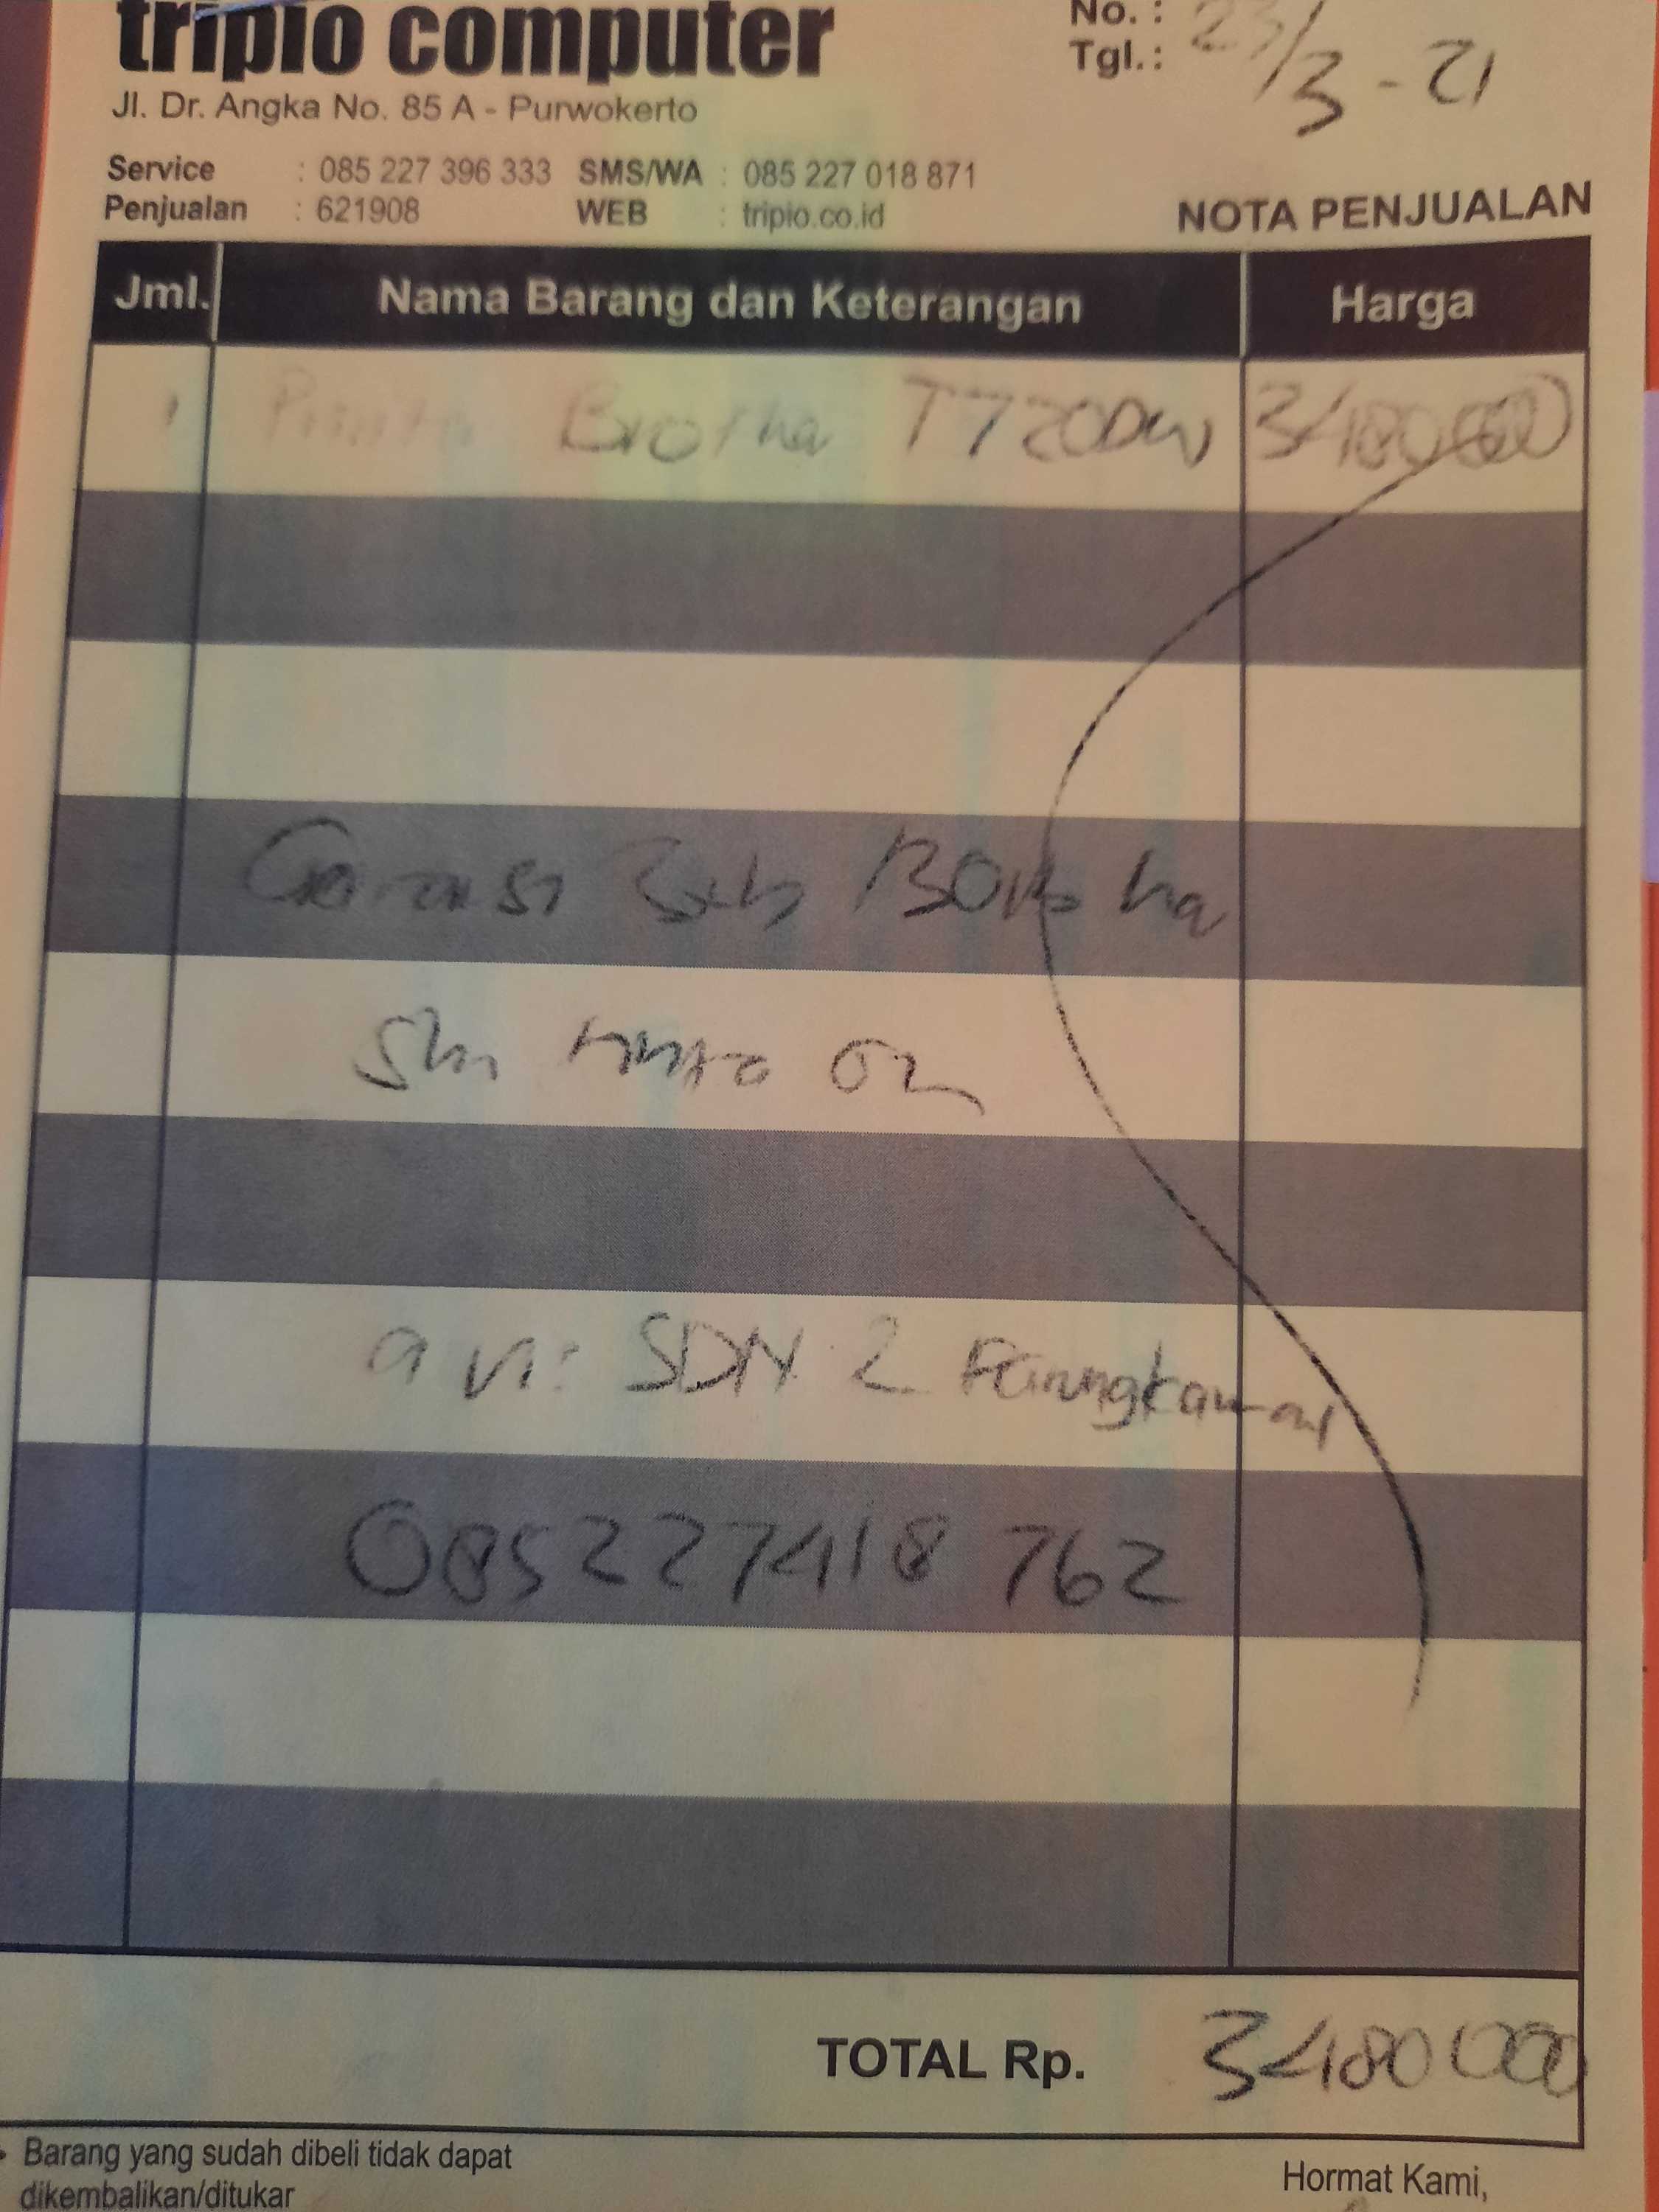 tripio computer
No. :
Tgl.: 23/3 - 21
Jl. Dr. Angka No. 85 A - Purwokerto
Service : 085 227 396 333 SMS/WA : 085 227 018 871
Penjualan : 621908 WEB : tripio.co.id
NOTA PENJUALAN
Jml. Nama Barang dan Keterangan Harga
1 Printer Brother T720DW 3480000
Garansi
a n: SDN 2
085227418 762
TOTAL Rp. 3480000
Barang yang sudah dibeli tidak dapat
dikembalikan/ditukar
Hormat Kami,